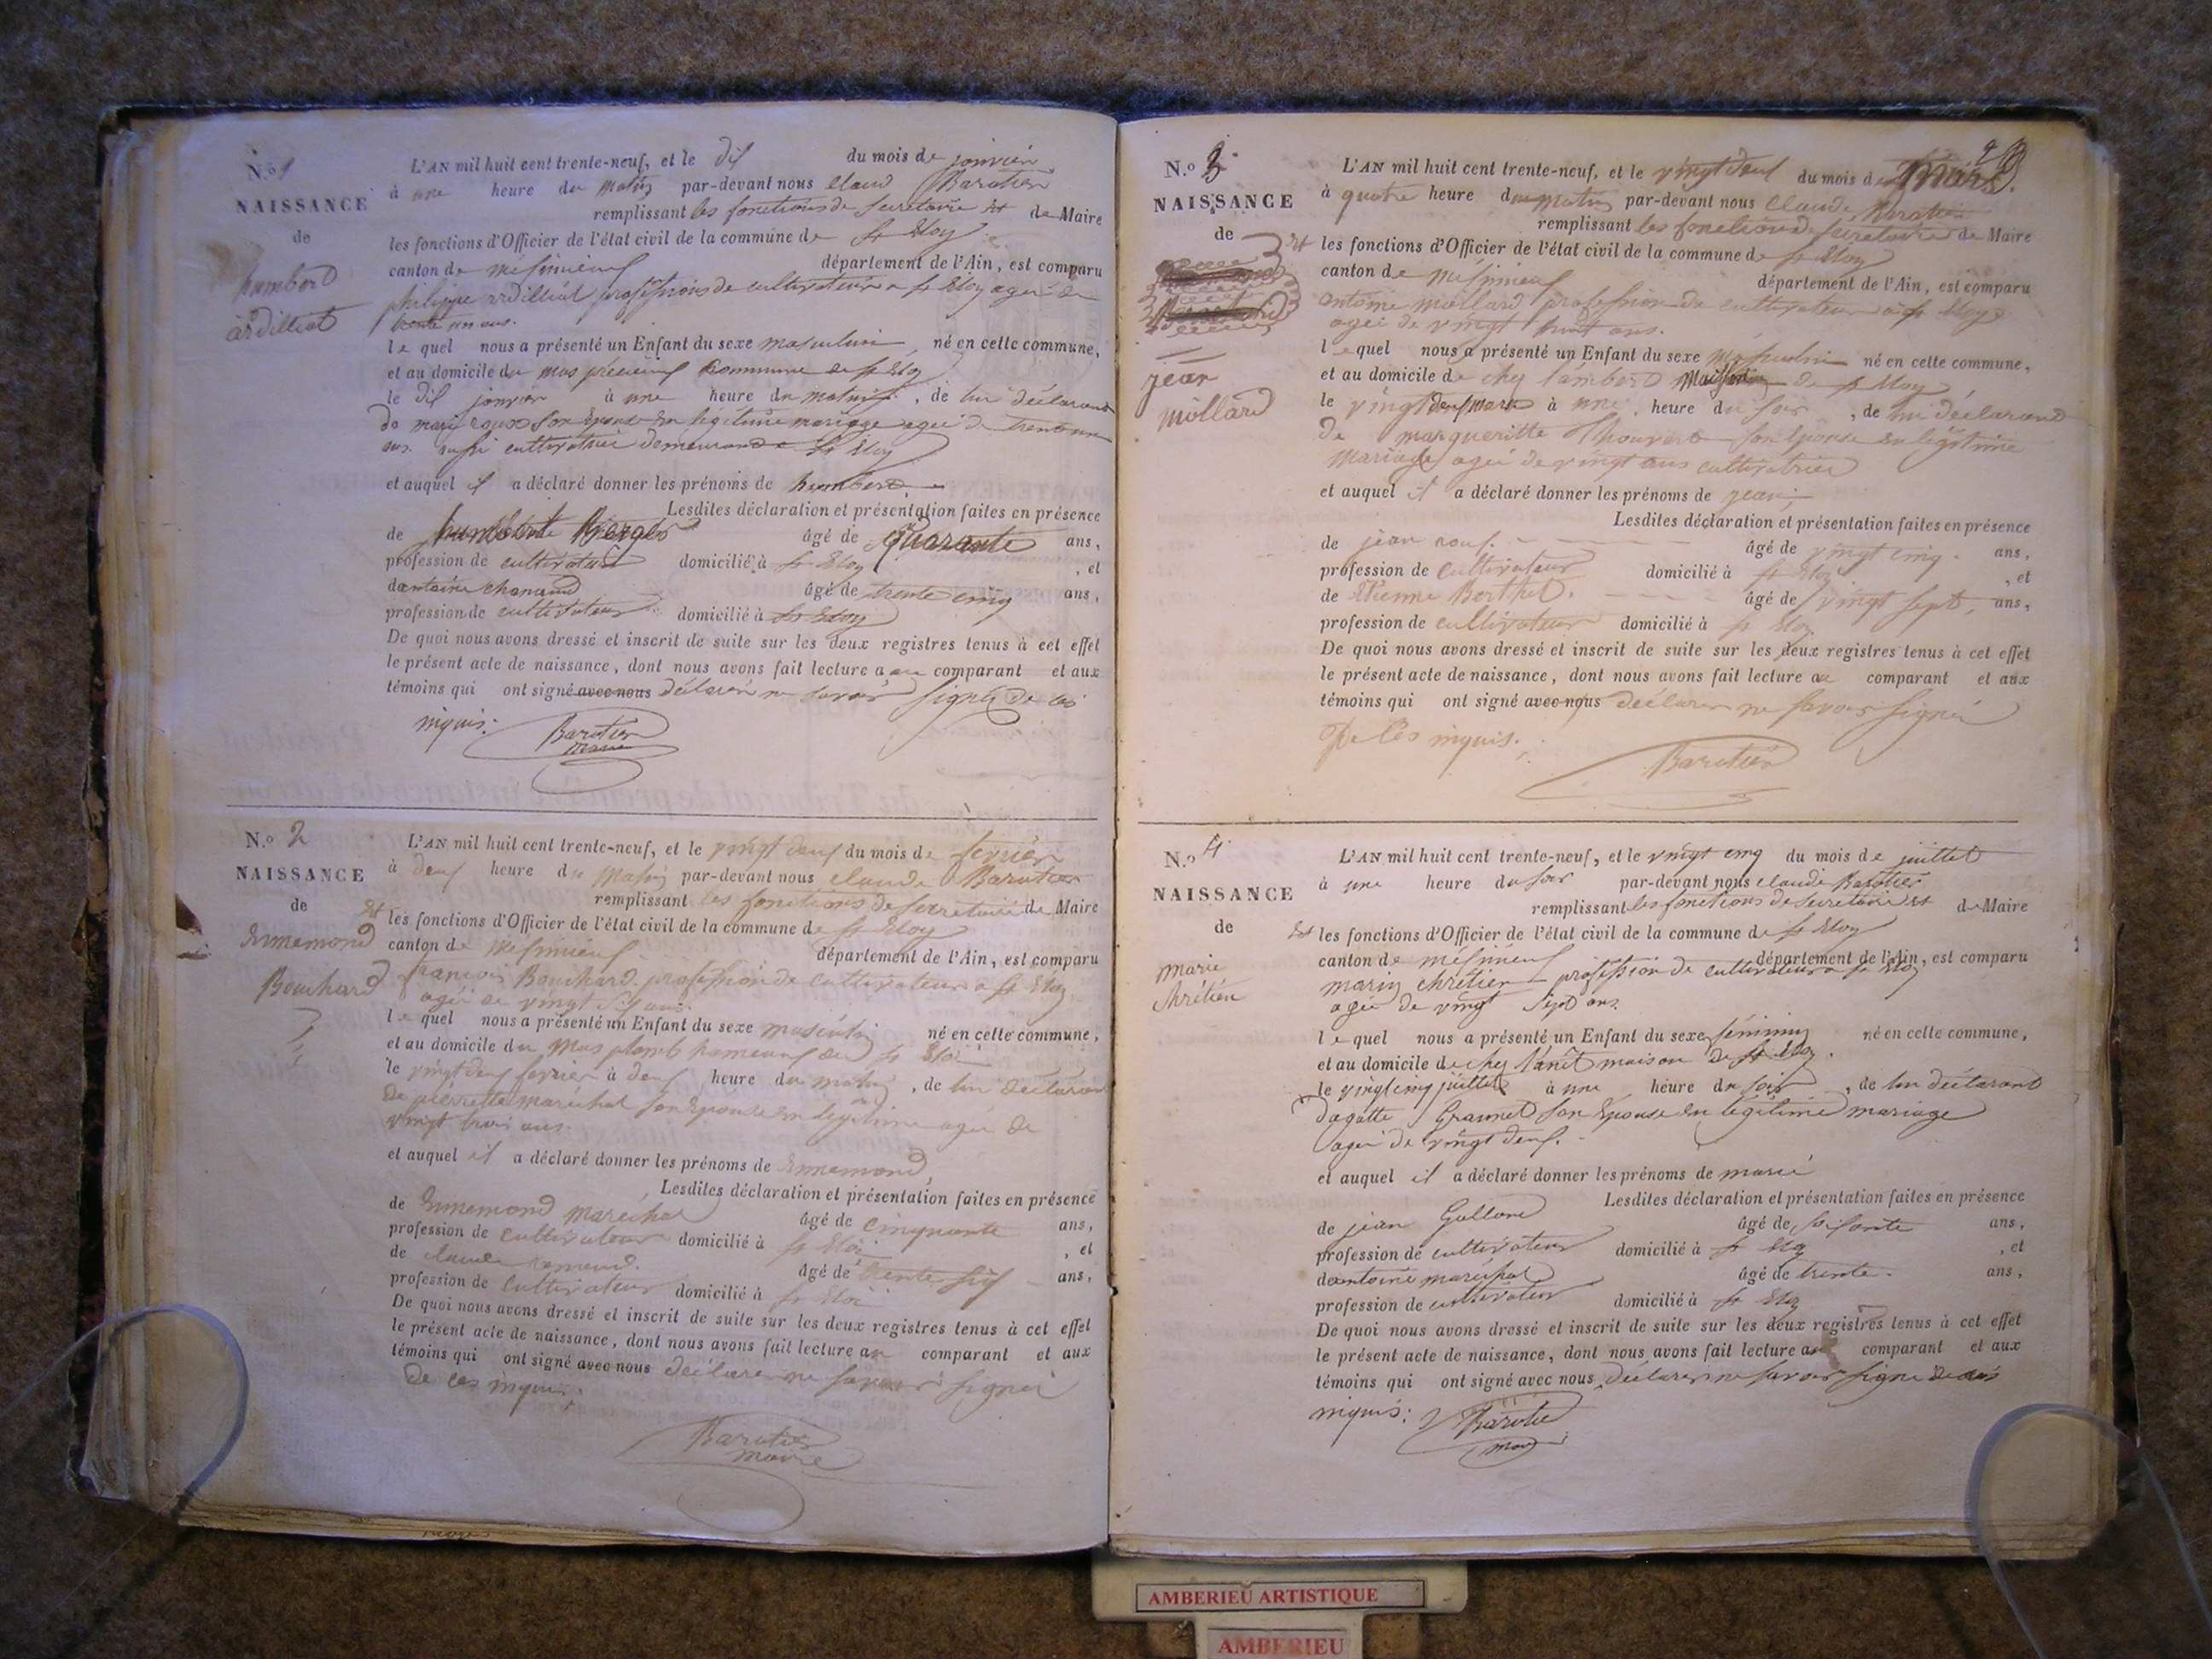 N.º 1
NAISSANCE
de
humbert
ardilliat
L'AN mil huit cent trente-neuf, et le dix du mois de janvier
à une heure du matin par-devant nous Claud Barutier
remplissant les fonctions de secretaire et de Maire
les fonctions d'Officier de l'état civil de la commune de St Eloy
canton de méximieux département de l'Ain, est comparu
philippe ardilliat profession de cultivateur a St Eloy agé de
trente un ans.
lequel nous a présenté un Enfant du sexe masculin, né en cette commune,
et au domicile du mas commune de St Eloy
le dix janvier à une heure du matin, de lui déclarant
de marie roux son épouse en légitime mariage agée de trente un
ans. aussi cultivatrice demeurand a St Eloy
et auquel il a déclaré donner les prénoms de humbert.
Lesdites déclaration et présentation faites en présence
de âgé de Quarante ans,
profession de cultivateur domicilié à St Eloy, et
dantoine chanaud âgé de trente cinq ans,
profession de cultivateur domicilié à St Eloy
De quoi nous avons dressé et inscrit de suite sur les deux registres tenus à cet effet
le présent acte de naissance, dont nous avons fait lecture au comparant et aux
témoins qui ont signé avec nous déclaré ne savoir signé de ces
inquis.
Barutier
maire
N.º 2
NAISSANCE
de
Ennemond
Bouchard
L'AN mil huit cent trente-neuf, et le vingt deux du mois de fevrier
à deux heure du Matin par-devant nous claude Barutier
remplissant les fonctions de secretaire de Maire
et les fonctions d'Officier de l'état civil de la commune de St Eloy
canton de meximieux département de l'Ain, est comparu
francois Bouchard profession de cultivateur a St Eloy
agé de vingt six ans.
lequel nous a présenté un Enfant du sexe masculin né en cette commune,
et au domicile du Mas plomb hameaux de St Eloi
le vingt deux fevrier à deux heure du matin, de lui déclarant
de pierrette marechal son épouse en légitime agée de
vingt trois ans.
et auquel il a déclaré donner les prénoms de Ennemond,
Lesdites déclaration et présentation faites en présence
de Ennemond marechal âgé de cinquante ans,
profession de cultivateur domicilié à St Eloi, et
de claude âgé de trente six ans,
profession de cultivateur domicilié à St Eloi
De quoi nous avons dressé et inscrit de suite sur les deux registres tenus à cet effet
le présent acte de naissance, dont nous avons fait lecture au comparant et aux
témoins qui ont signé avec nous déclaré ne savoir signé
de ces inquis.
Barutier
maire
N.º 3
NAISSANCE
de
jean
mollard
L'AN mil huit cent trente-neuf, et le vingt deux du mois de Mars.
à quatre heure du matin par-devant nous claude Barutier
remplissant les fonctions de secretaire de Maire
et les fonctions d'Officier de l'état civil de la commune de St Eloy
canton de méximieux département de l'Ain, est comparu
antoine mollard profession de cultivateur a St Eloy
agé de vingt huit ans.
lequel nous a présenté un Enfant du sexe masculin né en cette commune,
et au domicile de chez lambert Maison de St Eloy
le vingt deux mars à une heure du soir, de lui déclarand
de margueritte Thouvard son épouse en légitime
mariage agée de vingt ans cultivatrice
et auquel il a déclaré donner les prénoms de jean
Lesdites déclaration et présentation faites en présence
de jean roux âgé de vingt cinq ans,
profession de cultivateur domicilié à St Eloy, et
de Etienne Berthet. âgé de vingt sept ans,
profession de cultivateur domicilié à St Eloy
De quoi nous avons dressé et inscrit de suite sur les deux registres tenus à cet effet
le présent acte de naissance, dont nous avons fait lecture au comparant et aux
témoins qui ont signé avec nous déclarer ne savoir signé
de ces inquis.
Barutier
N.º 4
NAISSANCE
de
marie
chrétien
L'AN mil huit cent trente-neuf, et le vingt cinq du mois de juillet
à une heure du soir par-devant nous claude Barutier
remplissant les fonctions de secretaire et de Maire
et les fonctions d'Officier de l'état civil de la commune de St Eloy
canton de méximieux département de l'Ain, est comparu
marin chrétien profession de cultivateur a St Eloy
agé de vingt sept ans.
lequel nous a présenté un Enfant du sexe féminin né en cette commune,
et au domicile de chez maison de St Eloy.
le vingt cinq juillet à une heure du soir, de lui déclarant
dagatte son épouse en légitime mariage
agée de vingt deux.
et auquel il a déclaré donner les prénoms de marie
Lesdites déclaration et présentation faites en présence
de jean âgé de soixante ans,
profession de cultivateur domicilié à St Eloy, et
dantoine maréchal âgé de trente ans,
profession de cultivateur domicilié à St Eloy
De quoi nous avons dressé et inscrit de suite sur les deux registres tenus à cet effet
le présent acte de naissance, dont nous avons fait lecture au comparant et aux
témoins qui ont signé avec nous, déclarer ne savoir signé de ces
inquis.
Barutier
maire
AMBERIEU ARTISTIQUE
AMBERIEU